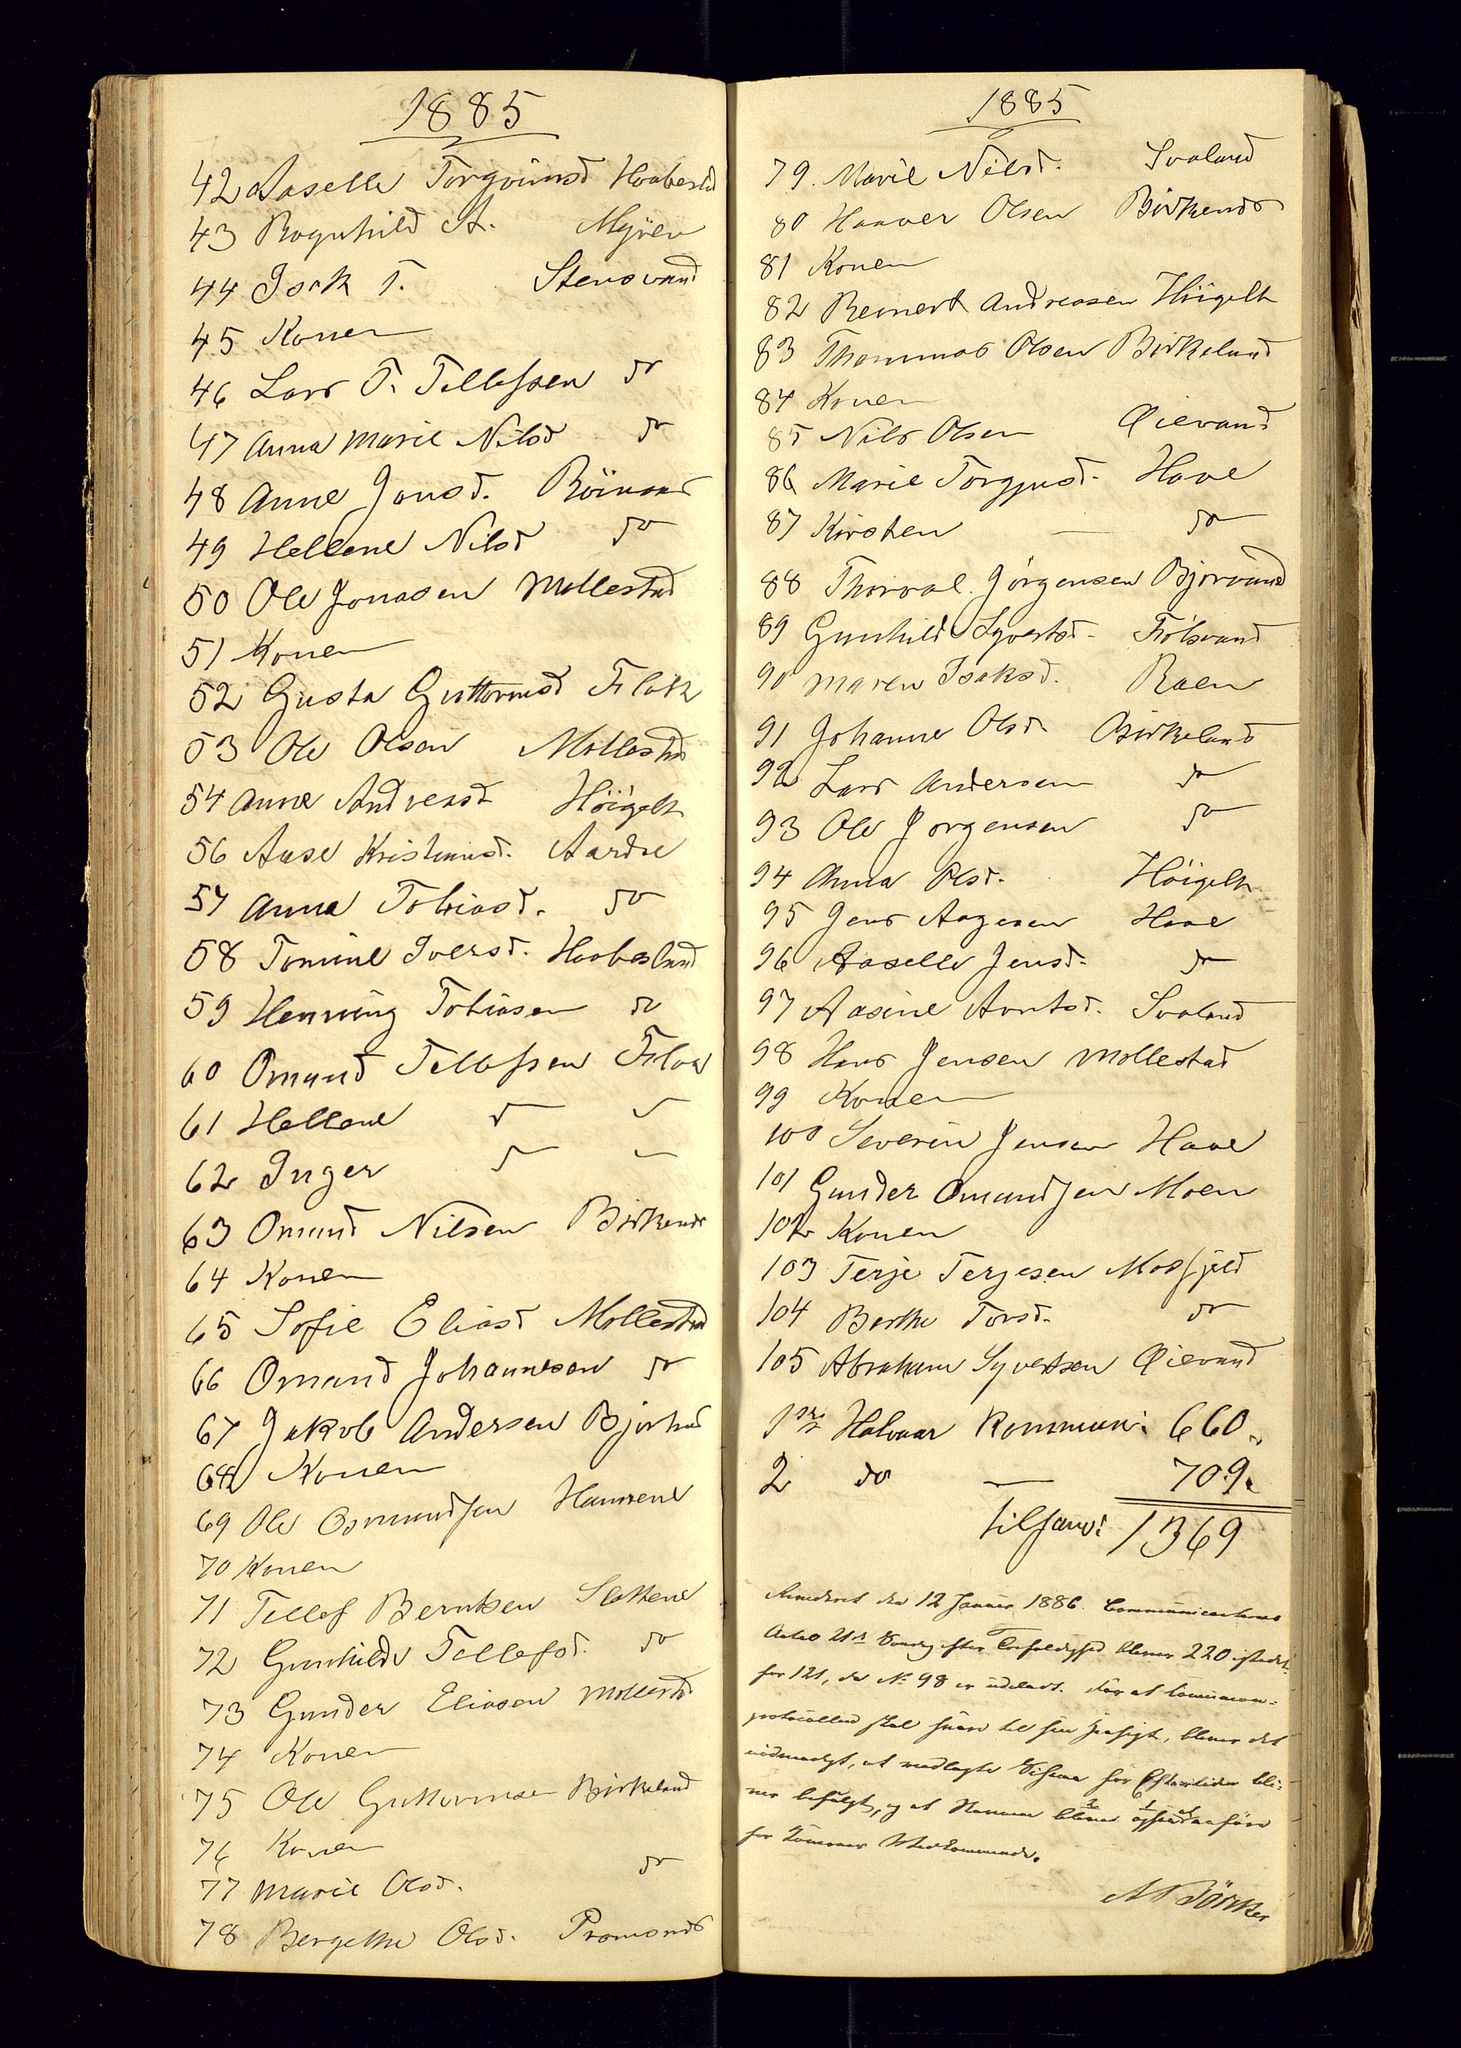 1885
42 Aaselle Torgrimsd Haabesld
43 Ragnhild A. Myren
44 Isak T. Stensvand
45 Konen
46 Lars T. Tellefsen do
47 Anna Marie Nilsd do
48 Anne Jonsd. Röinaas
49 Hellene Nilsd do
50 Ole Jonasen Mollestad
51 Konen
52 Gusta Guttormsd Flak
53 Ole Olsen Mollestad
54 Anne Andreasd Höigelt
56 Aase Kristensd. Aardre
57 Anna Tobiasd. do
58 Tomine Iversd. Haabesland
59 Henning Tobiasen do
60 Omund Tellefsen Flaa
61 Hellene
62 Inger
63 Omund Nilsen Birkends
64 Konen
65 Sofie Eliasd Mollestad
66 Omund Johannesen do
67 Jakob Andersen
68 Konen
69 Ole Osmundsen
70 Konen
71 Tellef Berntsen
72 Gunhilde Tellefsd. do
73 Gunder Eliasen Mollestd
74 Konen
75 Ole Guttormsen Birkeland
76 Konen
77 Marie Olsd. do
78 Bergethe Olsd. Promonds
1885
79. Marie Nilsd. Svaland
80 Haaver Olsen Birkends
81 Konen
82 Reinert Andreasen Höigelt
83 Thommas Olsen Birkeland
84 Konen
85 Nils Olsen Øievand
86 Marie Torgjusd. Have
87 Kirsten — do
88 Thorval. Jörgensen Bjorvand
89 Gunhilde Syvertsd.
90 Maren Isaksd. Raen
91 Johanne Olsd. Birkeland
92 Lars Andersen do
93 Ole Jorgensen do
94 Anna Olsd. Höigelt
95 Jens Aagesen Have
96 Aaselle Jensd. do
97 Aasine Arntsd. Svaland
98 Hans Jensen Mollestad
99 Konen
100 Severin Jensen Have
101 Gunder Omundsen Moen
102 Konen
103 Terje Terjesen Mosfjeld
104 Berthe Torsd. do
105 Abraham Syvertsen Øievand
1ste Halvaar Kommun: 660
2 do — 709
tilsam: 1369
Revideret den 12 Januar 1886. Communicanternes
Antal 21de Søndag efter Trefoldighed bliver 220 istedet
for 121, da No 98 er udeladt. For at Communion-
protocollen skal svare til sin Hensigt, bliver det
nødvendigt, at vedlagte for Eftertiden bli-
ver befulgt, og at bliver
for